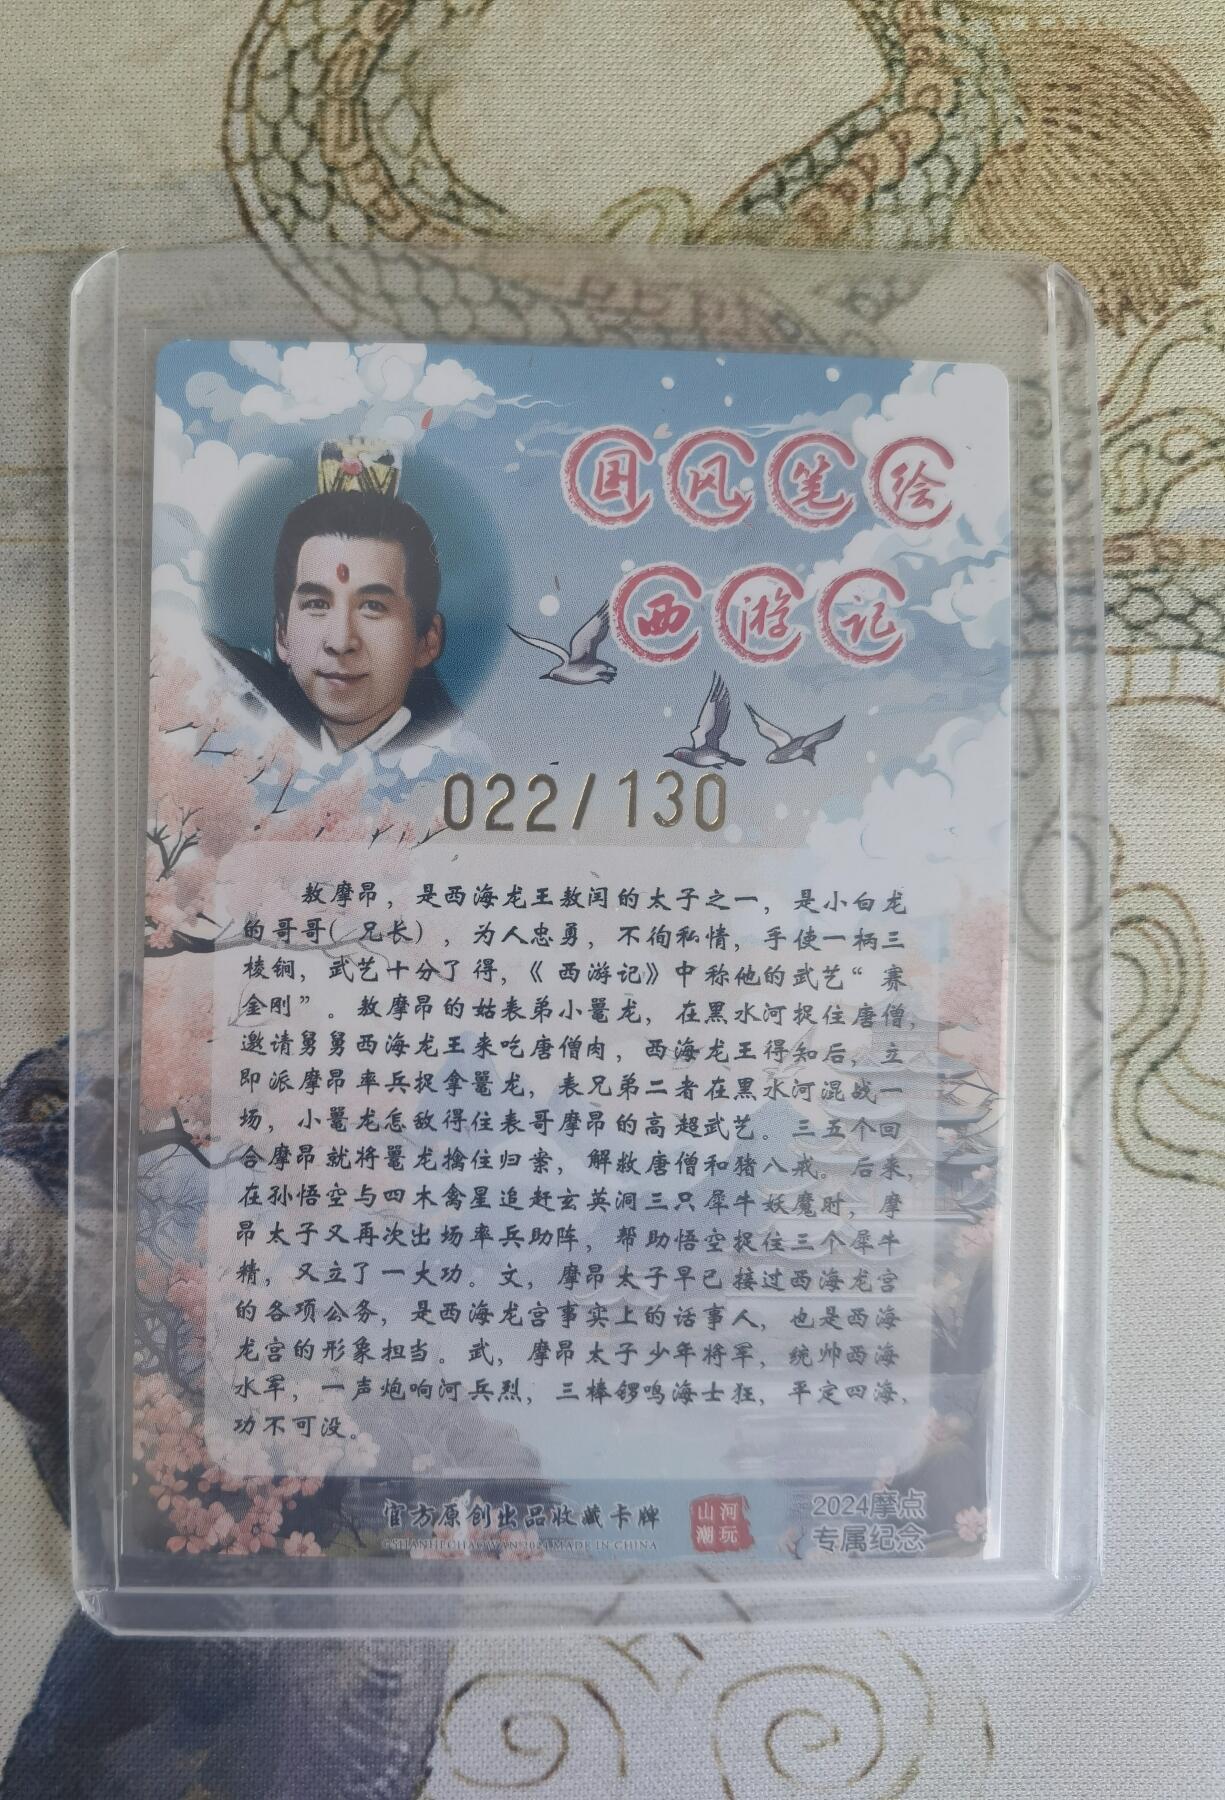 国风笔绘
西游记
022/130
敖摩昂，是西海龙王敖闰的太子之一，是小白龙
的哥哥（兄长），为人忠勇，不徇私情，手使一柄三
棱锏，武艺十分了得，《西游记》中称他的武艺“赛
金刚”。敖摩昂的姑表弟小鼍龙，在黑水河捉住唐僧，
邀请舅舅西海龙王来吃唐僧肉，西海龙王得知后，立
即派摩昂率兵捉拿鼍龙，表兄弟二者在黑水河混战一
场，小鼍龙怎敌得住表哥摩昂的高超武艺。三五个回
合摩昂就将鼍龙擒住归案，解救唐僧和猪八戒。后来，
在孙悟空与四木禽星追赶玄英洞三只犀牛妖魔时，摩
昂太子又再次出场率兵助阵，帮助悟空捉住三个犀牛
精，又立了一大功。文，摩昂太子早已接过西海龙宫
的各项公务，是西海龙宫事实上的话事人，也是西海
龙宫的形象担当。武，摩昂太子少年将军，统帅西海
水军，一声炮响河兵烈，三棒锣鸣海士狂，平定四海，
功不可没。
官方原创出品收藏卡牌
山河
潮玩
2024摩点
专属纪念
MADE IN CHINA